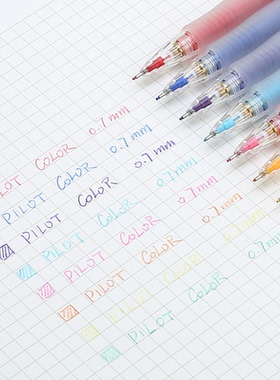 PILOT COLOR 0.7mm
PILOT COLOR 0.7mm
PILOT COLOR 0.7mm
PILOT COLOR 0.7mm
PILOT COLOR 0.7mm
PILOT COLOR 0.7mm
PILOT COLOR 0.7mm
PILOT COLOR 0.7mm